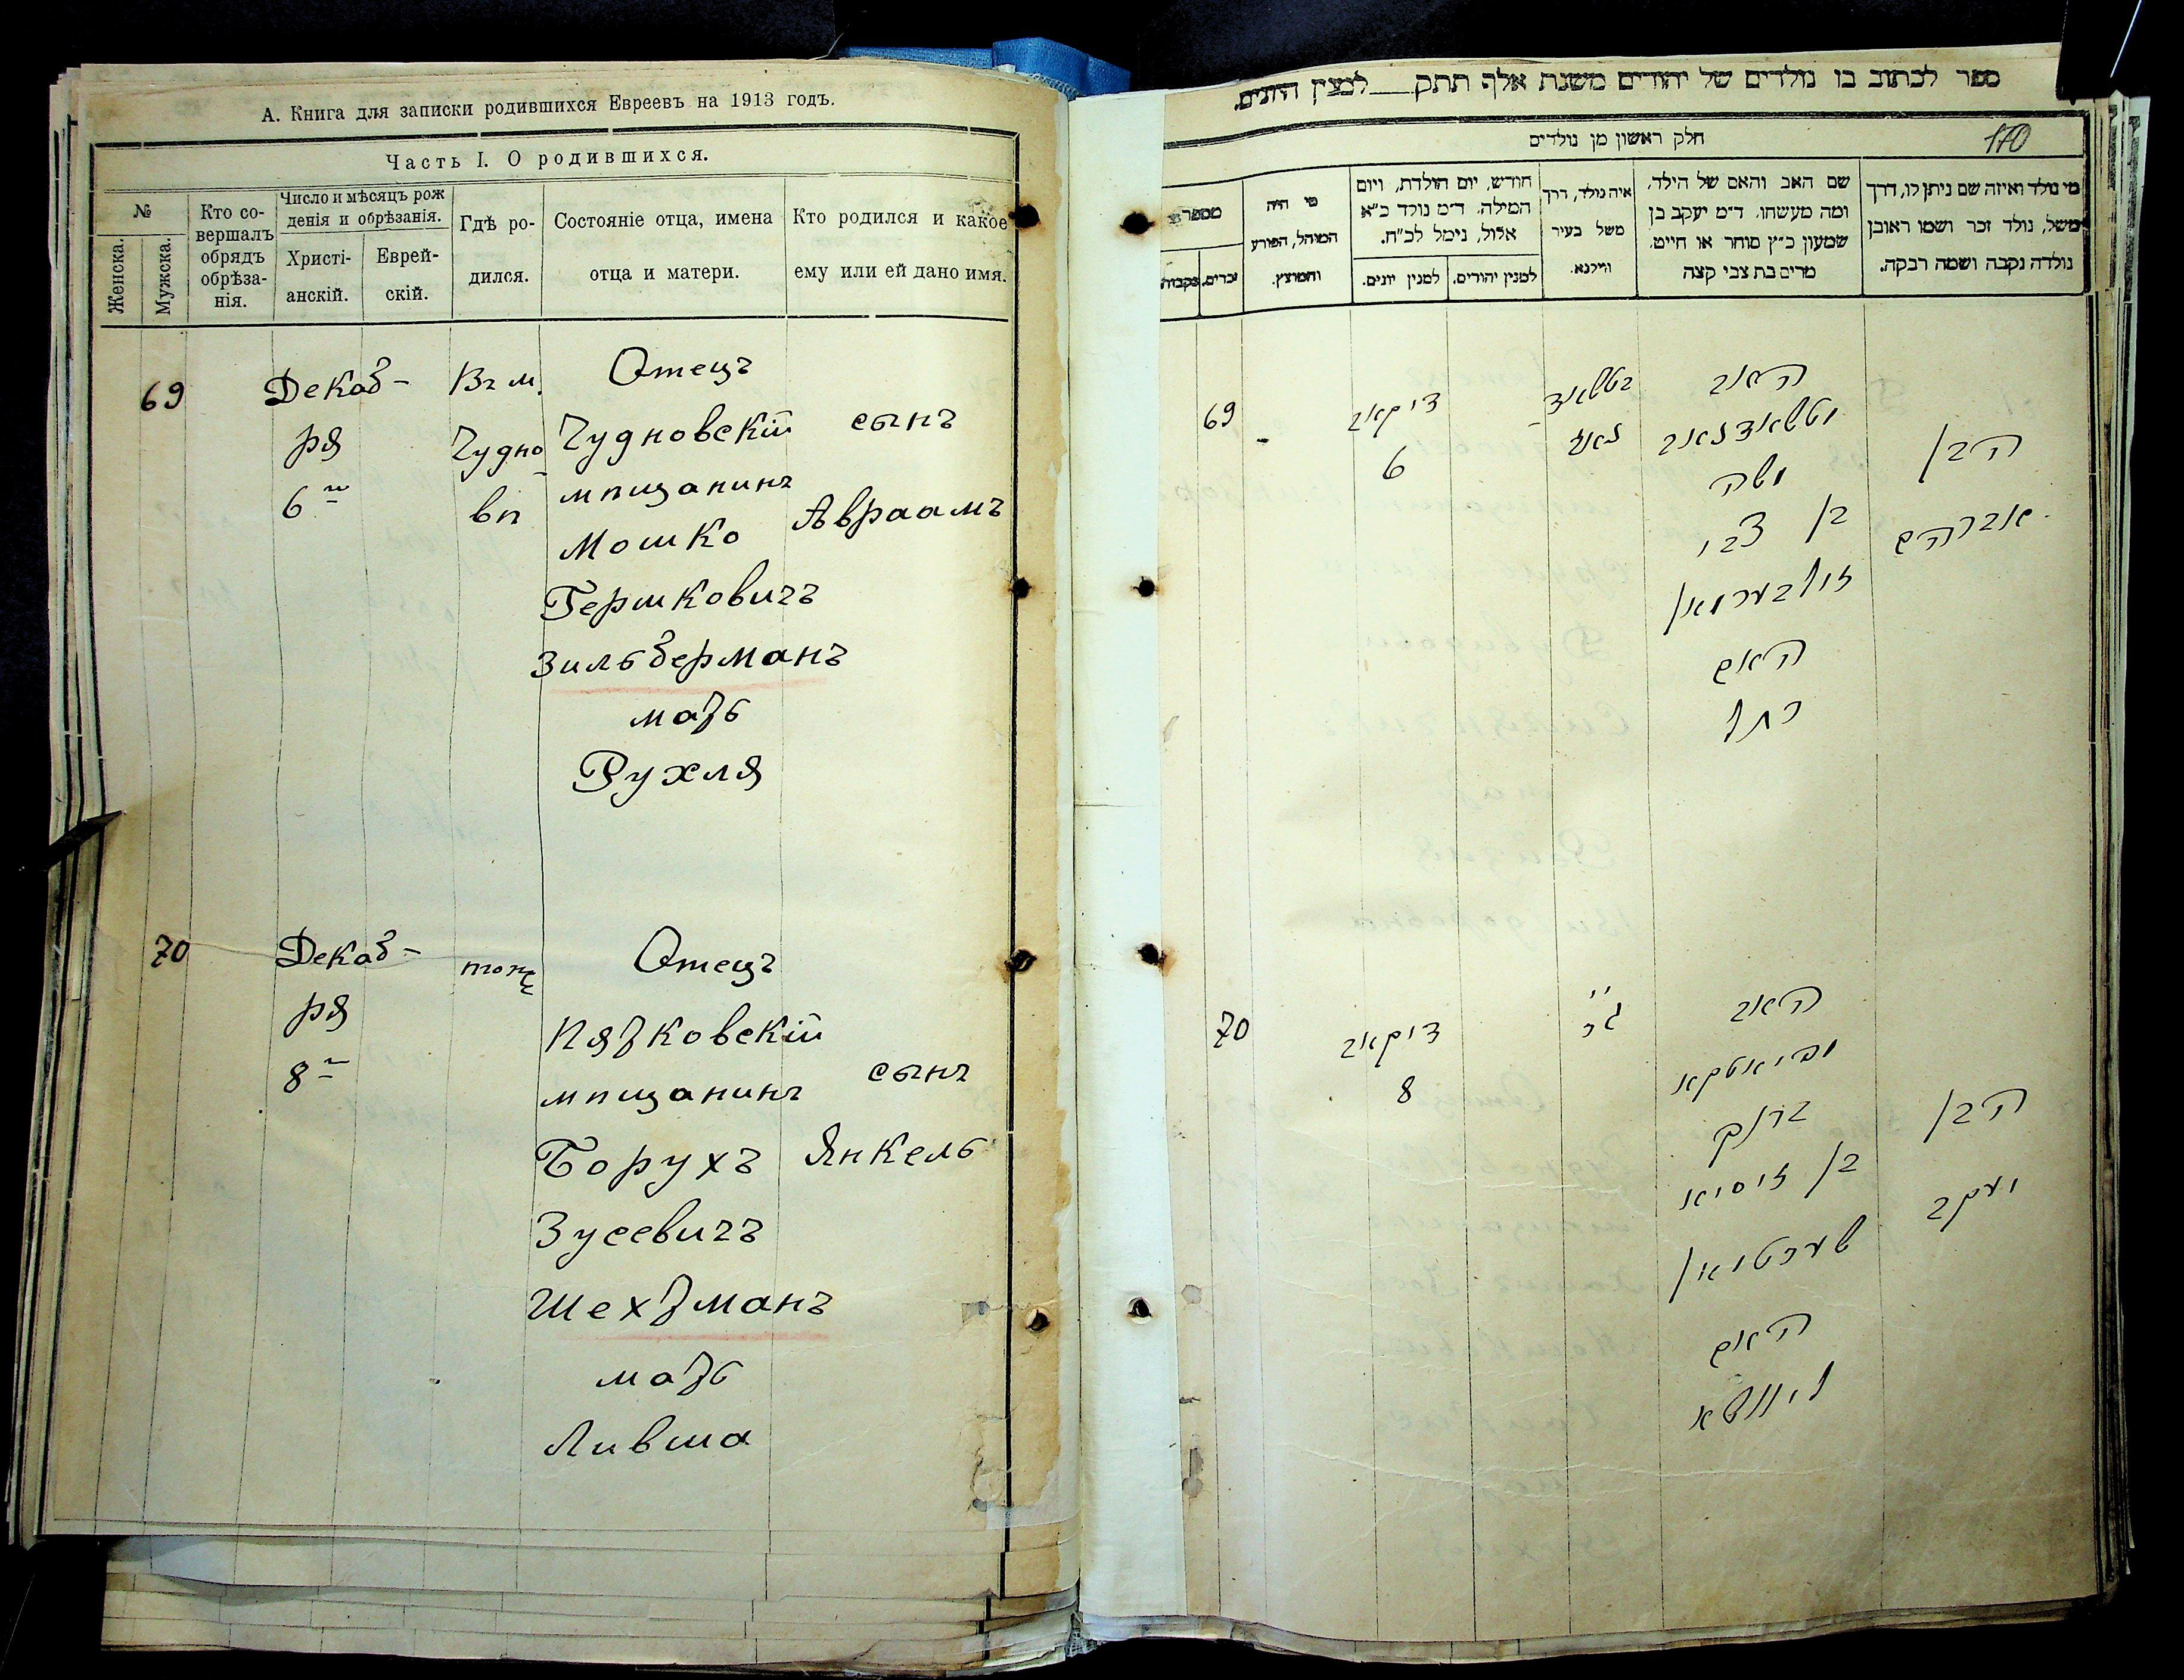 А. Книга для записки родившихся Евреевъ на 1913 годъ.
Часть I. О родившихся.
№
Женска.
Мужска.
Кто со-
вершалъ
обрядъ
обрѣза-
нія.
Число и мѣсяцъ рож
денія и обрѣзанія.
Христі-
анскій.
Еврей-
скій.
Гдѣ ро-
дился.
Состояніе отца, имена
отца и матери.
Кто родился и какое
ему или ей дано имя.
69
Декаб-
ря
6
Въ м.
Чудно
вѣ
Отецъ
Чудновскій
мѣщанинъ
Мошко
Гершковичъ
Зильберманъ
мать
Рухля
сынъ
Авраамъ
70
Декаб-
ря
8
тоже
Отецъ
Пятковскій
мѣщанинъ
Борухъ
Зусевичъ
Шехтманъ
мать
Лившa
сынъ
Янкель
ספר לכתוב בו נולדים של יהודים משנת אלף תתק__למנין היונים.
חלק ראשון מן נולדים
170
מי נולד ואיזה שם ניתן לו, דרך
משל, נולד זכר ושמו ראובן
נולדה נקבה ושמה רבקה.
שם האב והאם של הילד.
ומה מעשהו. ד״מ יעקב בן
שמעון כ״ץ סוחר או חייט.
מרים בת צבי קצה
איה נולד, דרך
משל בעיר
ווילנא.
חודש, יום הולדת, ויום
המילה. ד״מ נולד כ״א
אלול, נימל לכ״ח.
למנין יהודים.
למנין יונים.
מי היה
המוהל, הפורע
והמוצץ.
מספר
זכרים.
נקבות
69
דיקאב
6
האב
משה
בן צבי
זילבערמאן
האם
רחל
הבן
אברהם
70
דיקאב
8
האב
ברוך
בן זיסיא
שעכטמאן
האם
ליוושא
הבן
יעקב